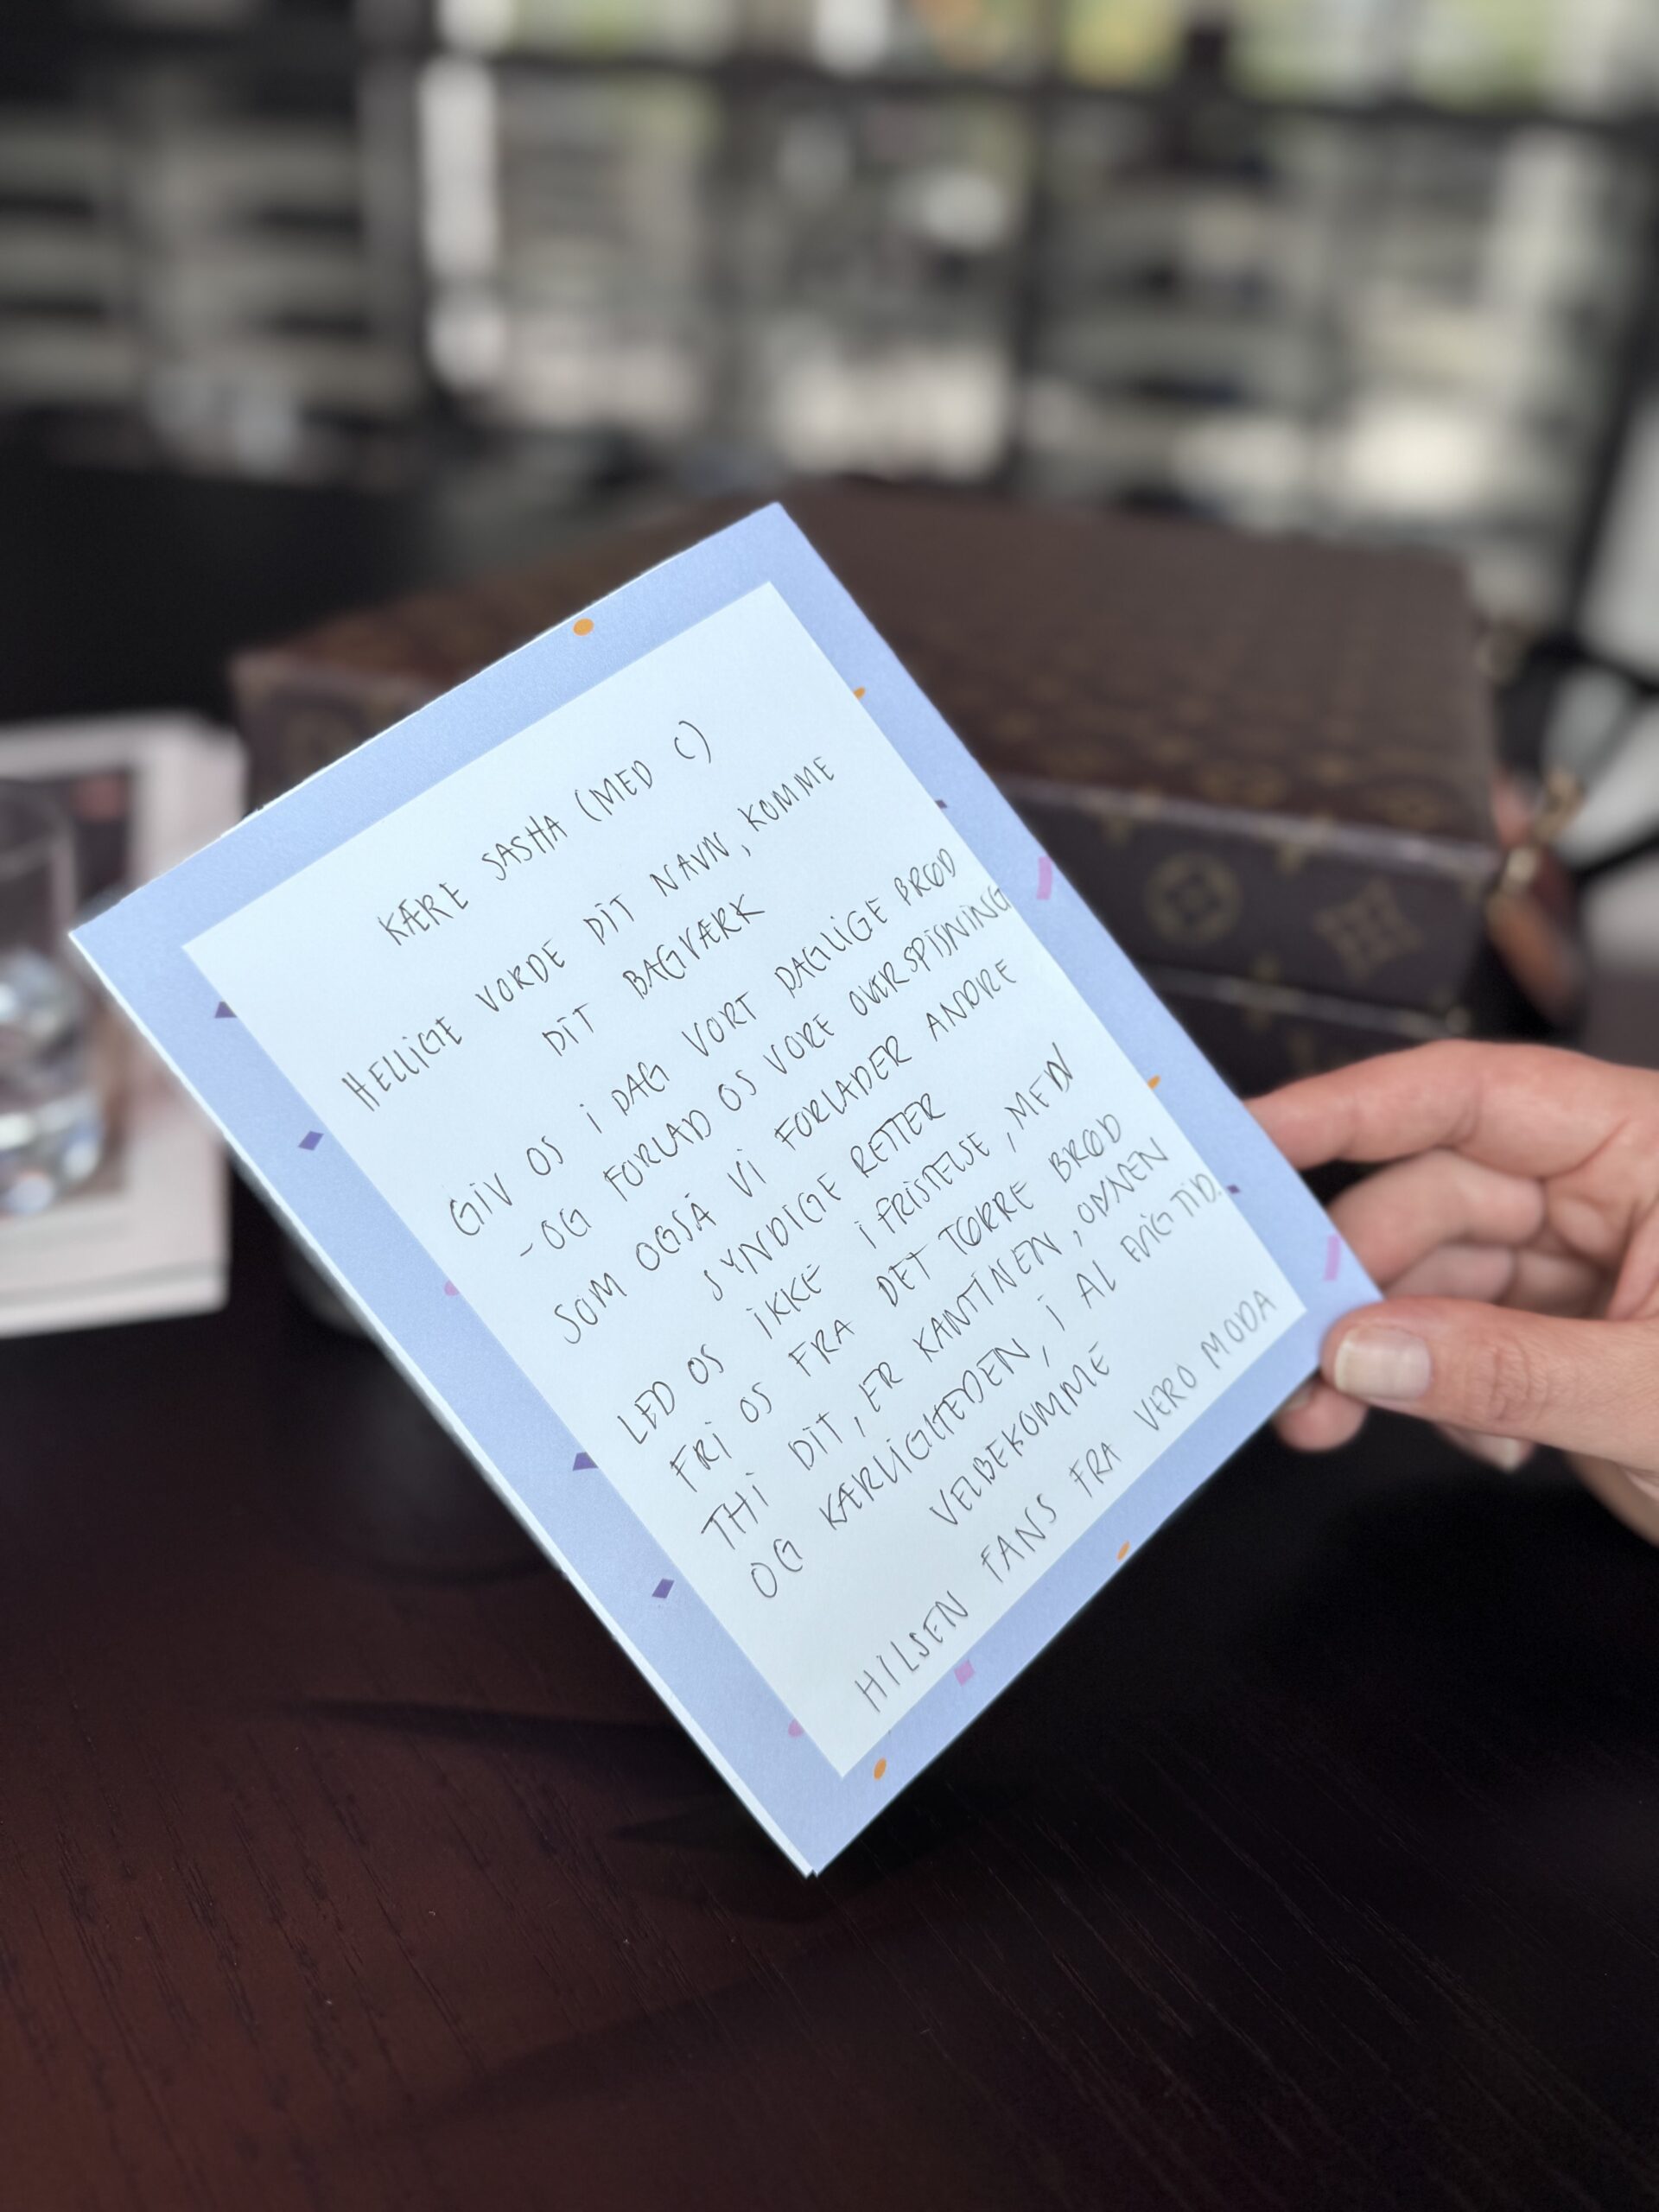 KÆRE SASHA (MED C)
HELLIGE VORDE DIT NAVN, KOMME
DIT BAGVÆRK
GIV OS I DAG VORT DAGLIGE BRØD
- OG FORLAD OS VORE OVERSPISNING
SOM OGSÅ VI FORLADER ANDRE
SYNDIGE RETTER
LED OS IKKE I FRISTELSE, MEN
FRI OS FRA DET TØRRE BRØD
THI DIT, ER KANTINEN, OVNEN
OG KÆRLIGHEDEN, I AL EVIG TID.
VELBEKOMME
HILSEN FANS FRA VERO MODA